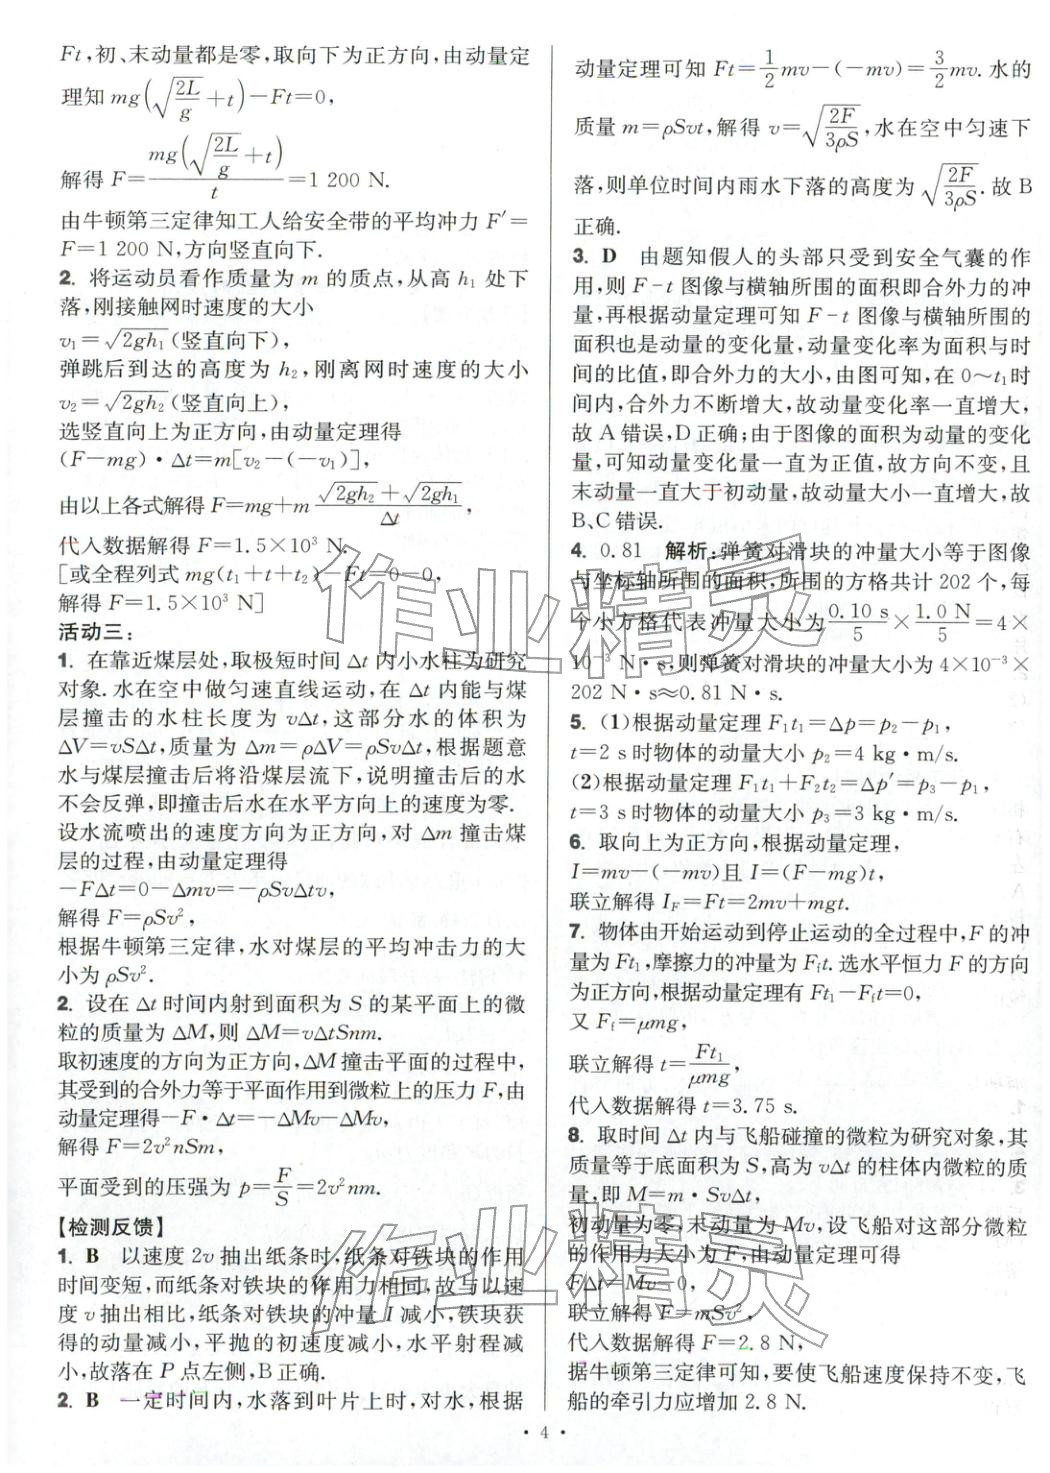 Ft,初、末动量都是零,取向下为正方向,由动量定
理知 mg(√(2L/g)+t)−Ft=0,
解得 F=mg(√(2L/g)+t)/t=1 200 N.
由牛顿第三定律知工人给安全带的平均冲力 F′=
F=1 200 N,方向竖直向下.
2. 将运动员看作质量为 m 的质点,从高 h₁ 处下
落,刚接触网时速度的大小
v₁=√(2gh₁)(竖直向下),
弹跳后到达的高度为 h₂,刚离网时速度的大小
v₂=√(2gh₂)(竖直向上),
选竖直向上为正方向,由动量定理得
(F−mg)·Δt=m[v₂−(−v₁)],
由以上各式解得 F=mg+m(√(2gh₂)+√(2gh₁))/Δt,
代入数据解得 F=1.5×10³ N.
[或全程列式 mg(t₁+t+t₂)−Ft=0−0,
解得 F=1.5×10³ N]
活动三:
1. 在靠近煤层处,取极短时间 Δt 内小水柱为研究
对象.水在空中做匀速直线运动,在 Δt 内能与煤
层撞击的水柱长度为 vΔt,这部分水的体积为
ΔV=vSΔt,质量为 Δm=ρΔV=ρSvΔt,根据题意
水与煤层撞击后将沿煤层流下,说明撞击后的水
不会反弹,即撞击后水在水平方向上的速度为零.
设水流喷出的速度方向为正方向,对 Δm 撞击煤
层的过程,由动量定理得
−FΔt=0−Δmv=−ρSvΔtv,
解得 F=ρSv²,
根据牛顿第三定律,水对煤层的平均冲击力的大
小为 ρSv².
2. 设在 Δt 时间内射到面积为 S 的某平面上的微
粒的质量为 ΔM,则 ΔM=vΔtSnm.
取初速度的方向为正方向,ΔM 撞击平面的过程中,
其受到的合外力等于平面作用到微粒上的压力 F,由
动量定理得−F·Δt=−ΔMv−ΔMv,
解得 F=2v²nSm,
平面受到的压强为 p=F/S=2v²nm.
【检测反馈】
1. B 以速度 2v 抽出纸条时,纸条对铁块的作用
时间变短,而纸条对铁块的作用力相同,故与以速
度 v 抽出相比,纸条对铁块的冲量 I 减小,铁块获
得的动量减小,平抛的初速度减小,水平射程减
小,故落在 P 点左侧,B 正确.
2. B 一定时间内,水落到叶片上时,对水,根据
动量定理可知 Ft=1/2 mv−(−mv)=3/2 mv.水的
质量 m=ρSvt,解得 v=√(2F/3ρS),水在空中匀速下
落,则单位时间内雨水下落的高度为 √(2F/3ρS).故 B
正确.
3. D 由题知假人的头部只受到安全气囊的作
用,则 F-t 图像与横轴所围的面积即合外力的冲
量,再根据动量定理可知 F-t 图像与横轴所围的
面积也是动量的变化量,动量变化率为面积与时
间的比值,即合外力的大小,由图可知,在 0～t₁时
间内,合外力不断增大,故动量变化率一直增大,
故 A 错误,D 正确;由于图像的面积为动量的变化
量,可知动量变化量一直为正值,故方向不变,且
末动量一直大于初动量,故动量大小一直增大,故
B、C 错误.
4. 0.81 解析:弹簧对滑块的冲量大小等于图像
与坐标轴所围的面积,所围的方格共计 202 个,每
个小方格代表冲量大小为 0.10 s/5×1.0 N/5=4×
10⁻³ N·s,则弹簧对滑块的冲量大小为 4×10⁻³×
202 N·s≈0.81 N·s.
5. (1)根据动量定理 F₁t₁=Δp=p₂−p₁,
t=2 s 时物体的动量大小 p₂=4 kg·m/s.
(2)根据动量定理 F₁t₁+F₂t₂=Δp′=p₃−p₁,
t=3 s 时物体的动量大小 p₃=3 kg·m/s.
6. 取向上为正方向,根据动量定理,
I=mv−(−mv)且 I=(F−mg)t,
联立解得 I_F=Ft=2mv+mgt.
7. 物体由开始运动到停止运动的全过程中,F 的冲
量为 Ft₁,摩擦力的冲量为 F_f t.选水平恒力 F 的方向
为正方向,根据动量定理有 Ft₁−F_f t=0,
又 F_f=μmg,
联立解得 t=Ft₁/μmg,
代入数据解得 t=3.75 s.
8. 取时间 Δt 内与飞船碰撞的微粒为研究对象,其
质量等于底面积为 S,高为 vΔt 的柱体内微粒的质
量,即 M=m·SvΔt,
初动量为零,末动量为 Mv,设飞船对这部分微粒
的作用力大小为 F,由动量定理可得
FΔt=Mv−0,
联立解得 F=mSv²,
代入数据解得 F=2.8 N,
据牛顿第三定律可知,要使飞船速度保持不变,飞
船的牵引力应增加 2.8 N.
·4·
作业精灵
作业精灵